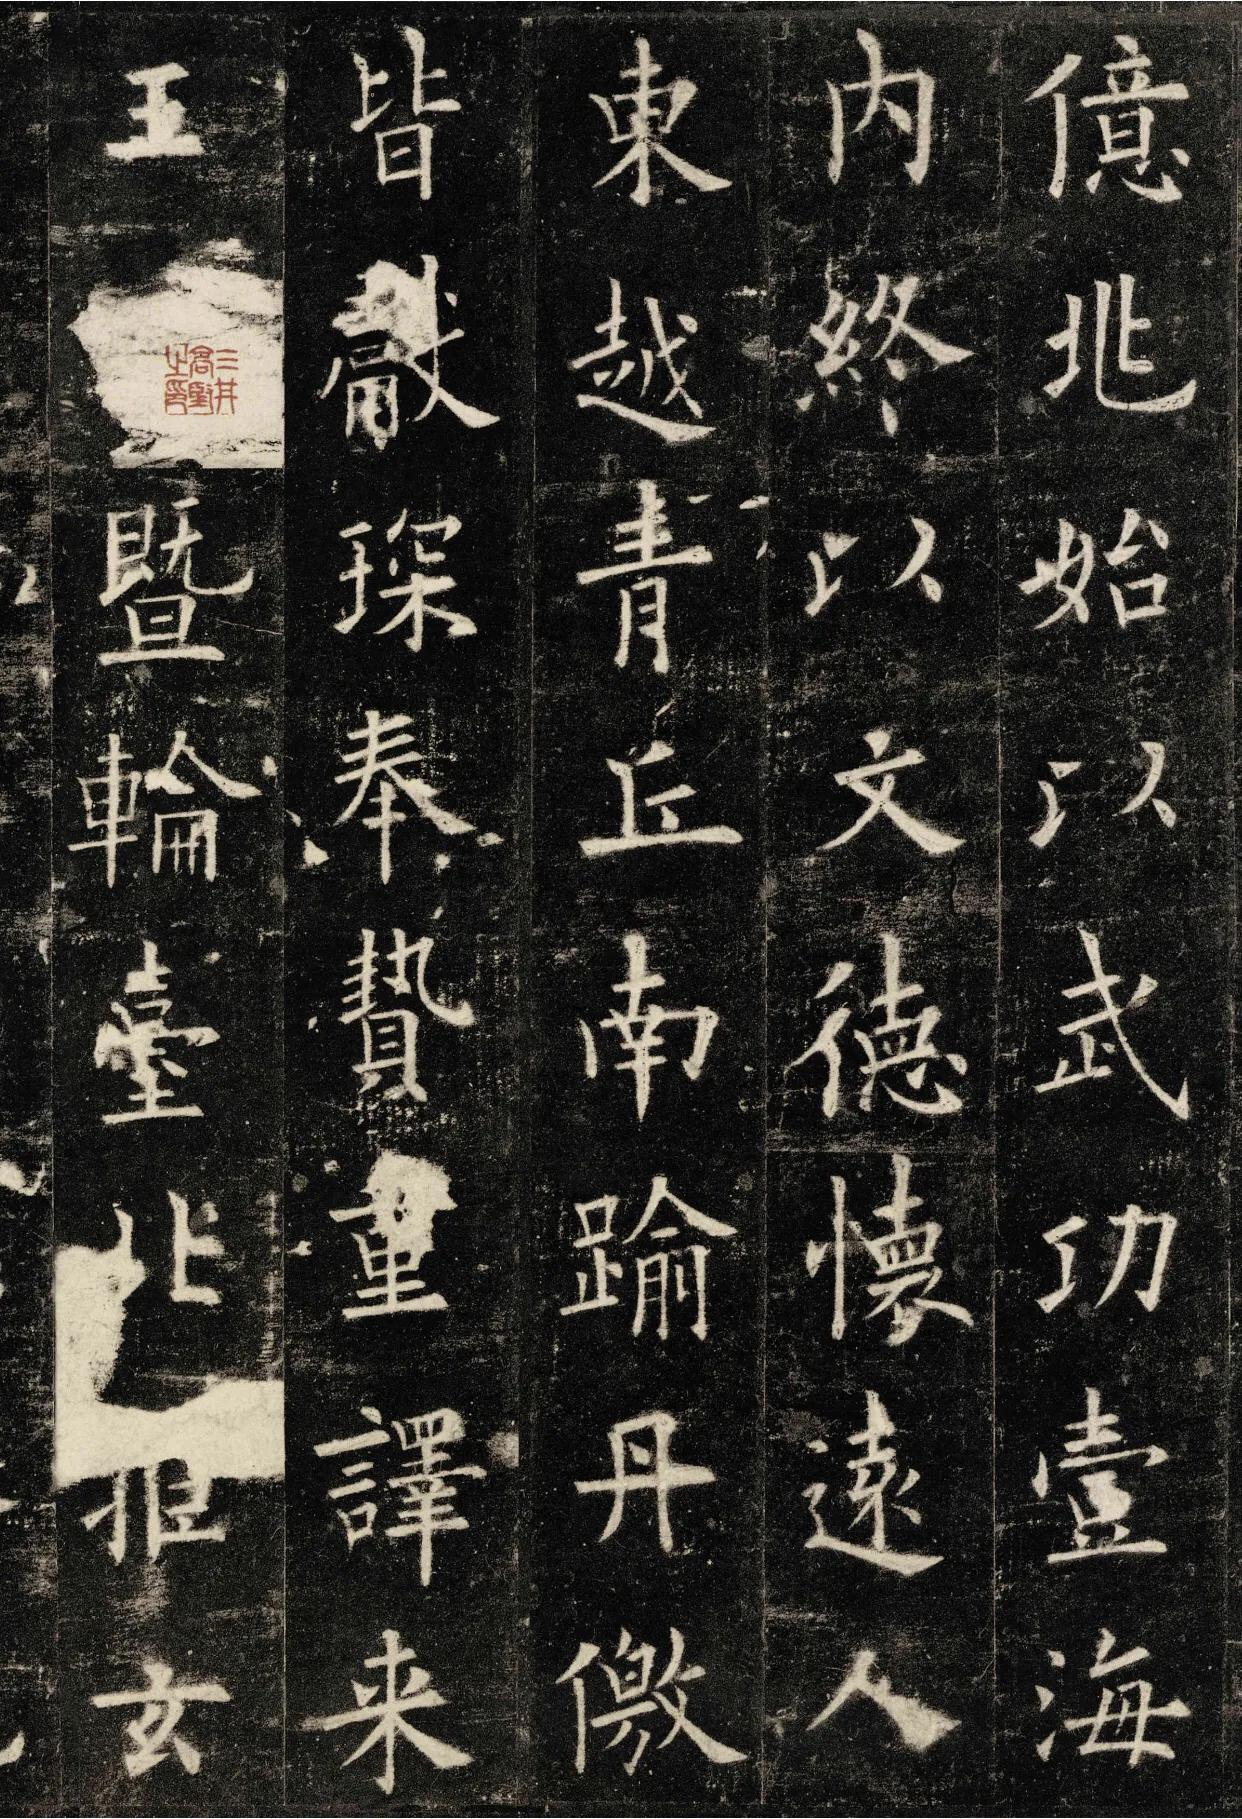 億兆始以武功壹海
内終以文德懷遠人
東越青丘南踰丹儌
皆獻琛奉贄重譯来
王
暨輪臺北拒玄